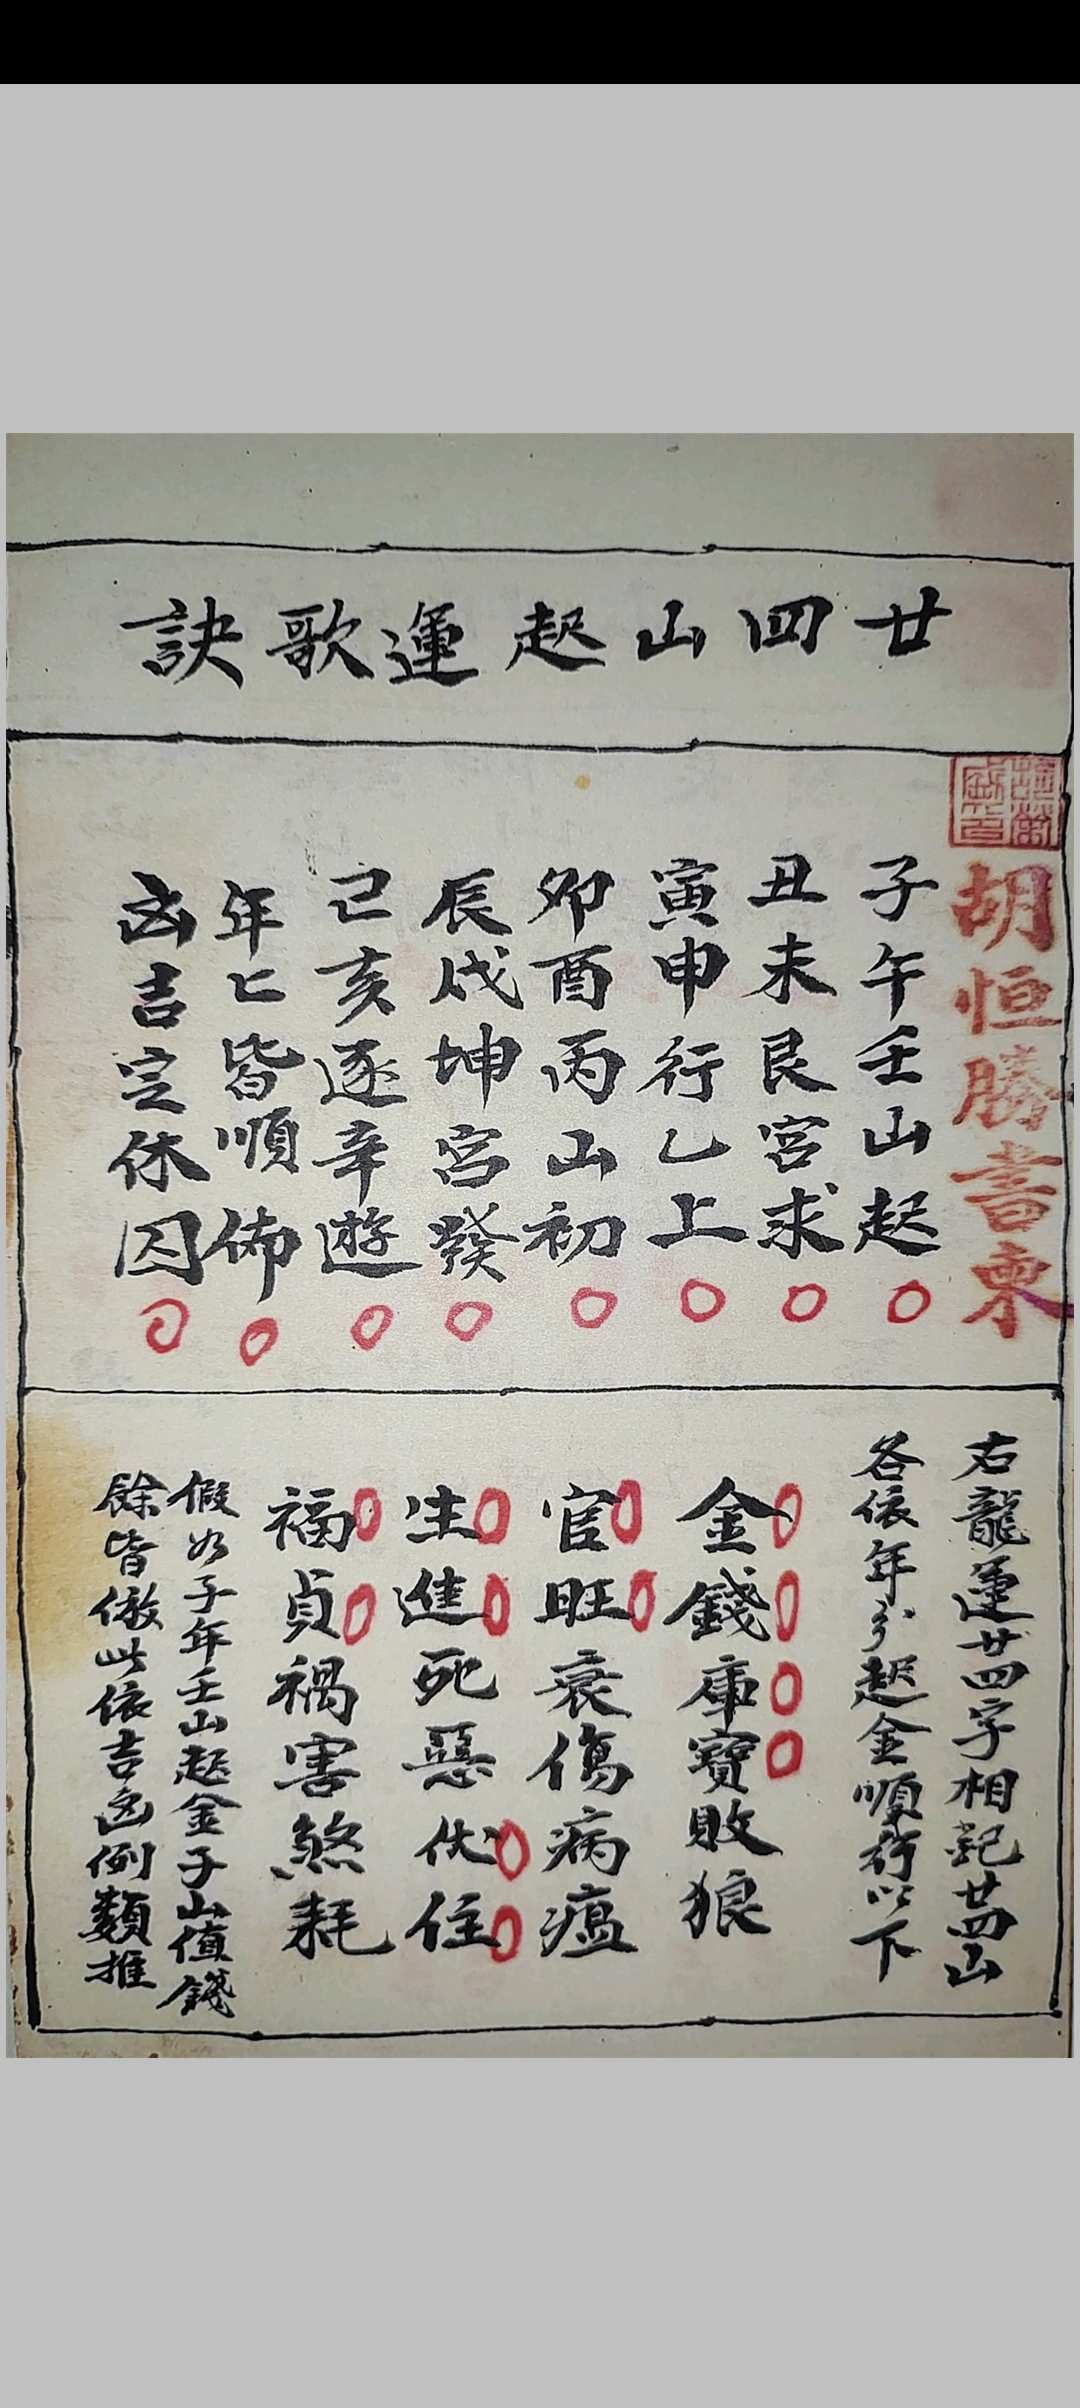 廿四山起運歌訣
胡恒勝書柬
子午壬山起
丑未艮宮求
寅申行乙上
卯酉丙山初
辰戌坤宮發
巳亥逐辛遊
年匕皆順佈
凶吉定休囚
右龍運廿四字相配廿四山
各依年分起金順行以下
金錢庫寶敗狼
官旺衰傷病瘟
生進死惡伏住
福貞禍害煞耗
假如子年壬山起金子山值錢
餘皆倣此依吉凶例類推